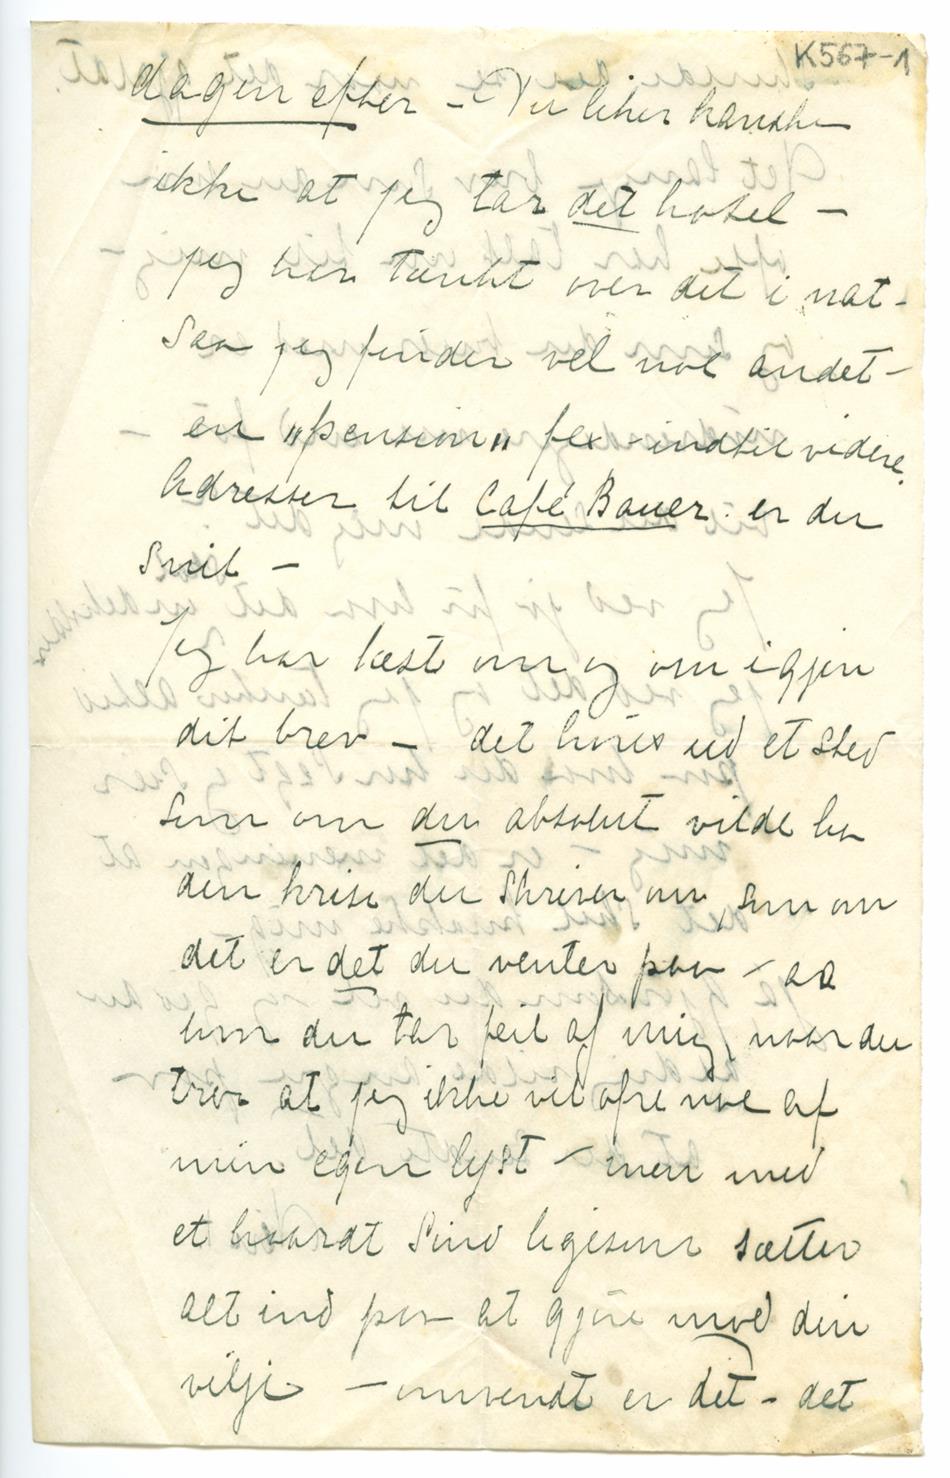 K567-1
dagen efter – Du liker kanske
ikke at jeg tar det hotel –
jeg har tænkt over det i nat –
saa jeg finder vel noe andet –
en „pension„ fex – indtil videre.
Adresser til Café Bauer er du
snil –
Jeg har læst om og om igjen
dit brev – det høres ud et sted
som om du absolut vilde ha
den krise du skriver om, som om
det er det du venter paa – aa
hvor du tar feil af mig, naar du
tror at jeg ikke vil ofre noe af
min egen lyst – men med
et haardt sind ligesom sætter
alt ind paa at gjøre mod din
vilje – omvendt er det – det